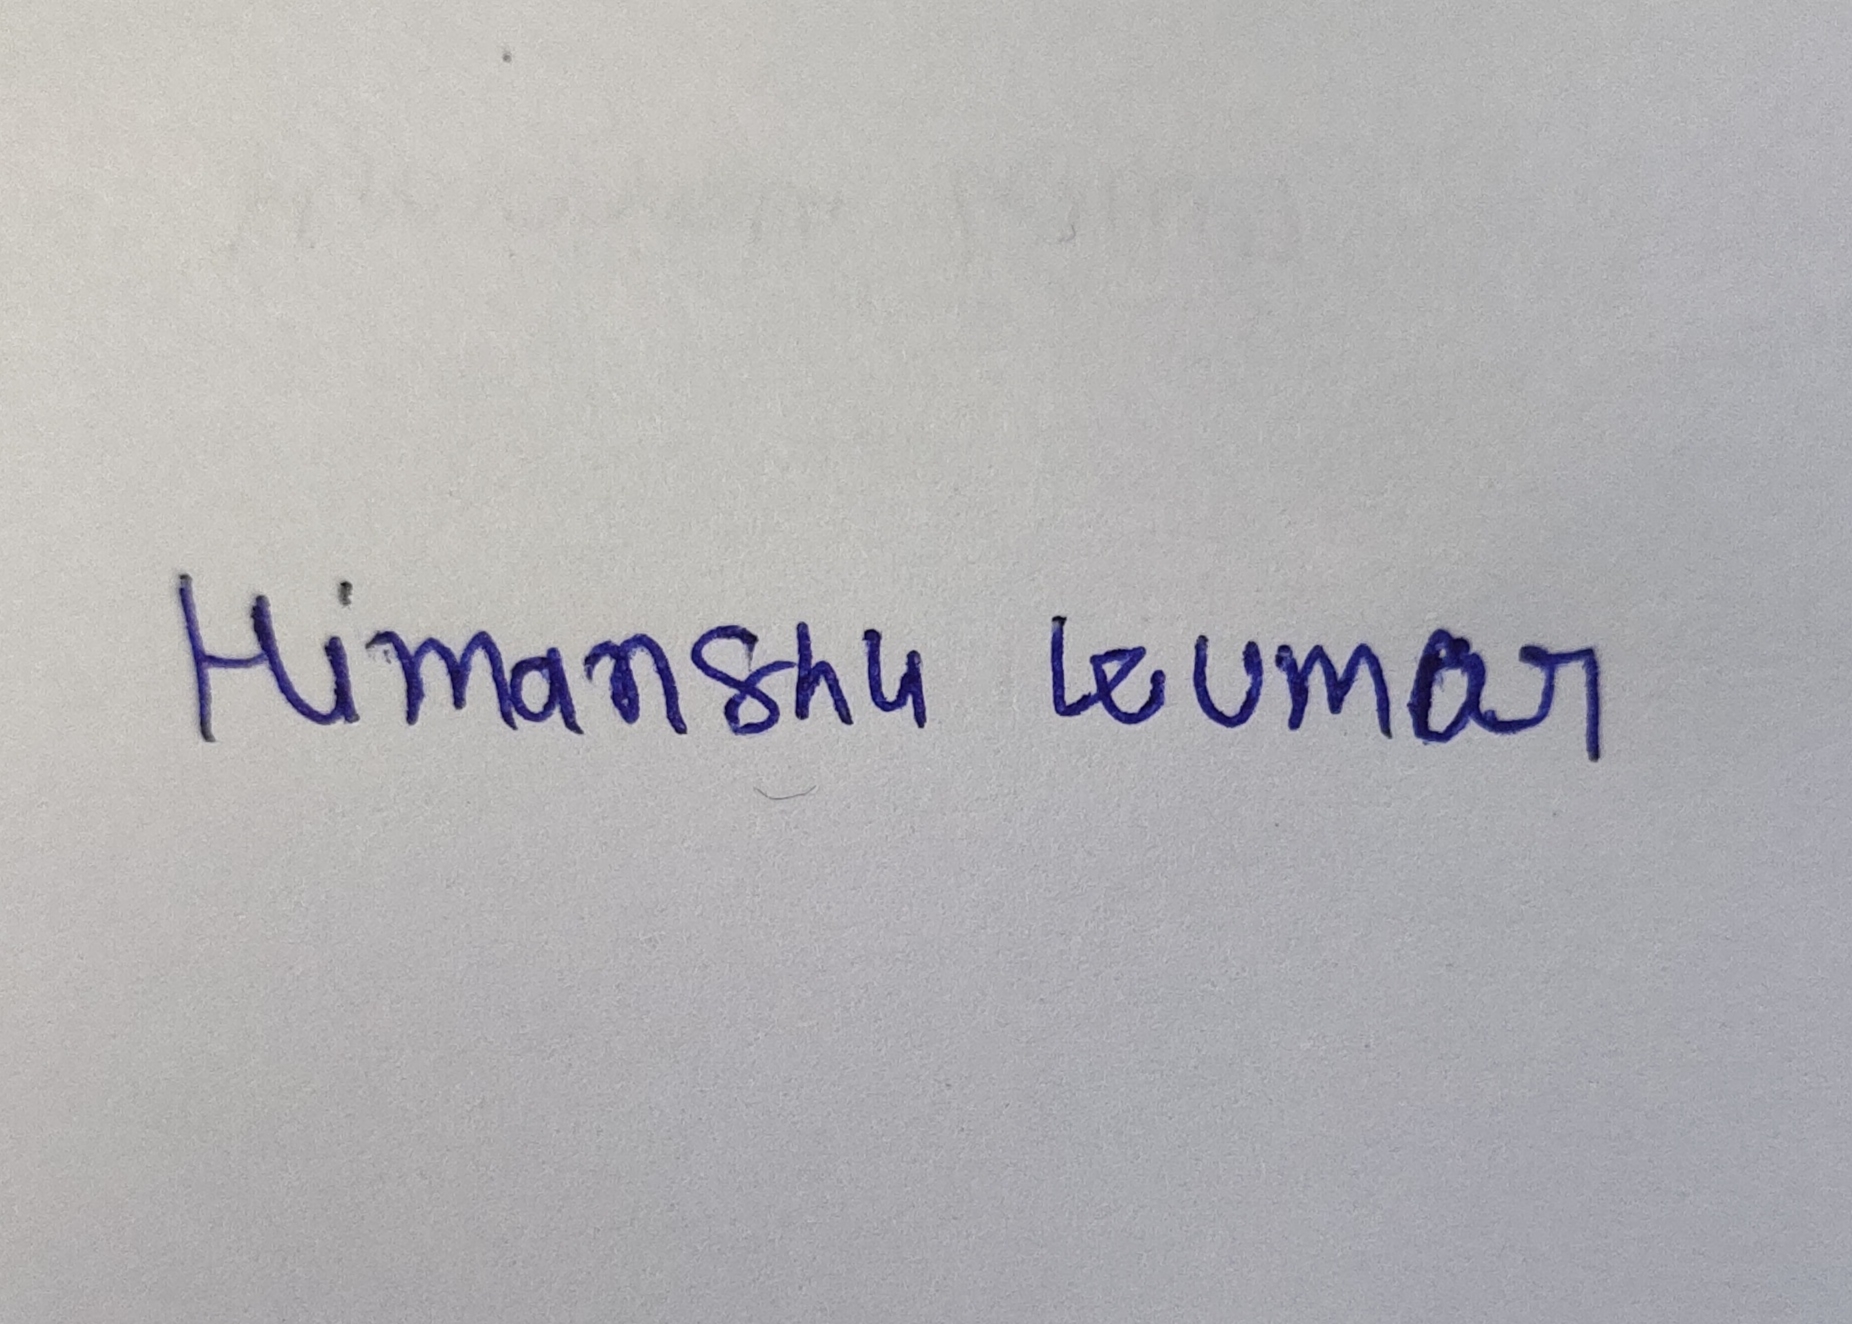 Himanshu kumar